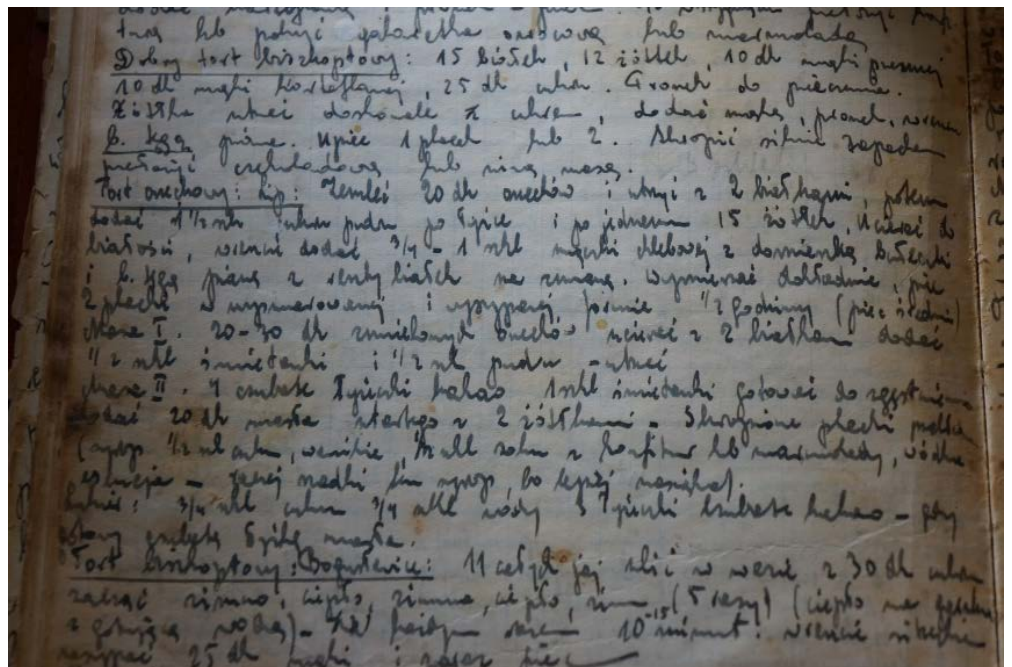 tura lub pokryć galaretką owocową lub marmoladą
Dobry tort biszkoptowy: 15 białek, 12 żółtek, 10 dk mąki pszennej
10 dk mąki kartoflanej, 25 dk cukru. Proszek do pieczenia.
Żółtka utrzeć doskonale z cukrem, dodać mąkę, proszek, wreszcie
b. gęstą pianę. Upiec 1 placek lub 2. Skropić silnie zapachem
przełożyć czekoladową lub inną masą.
Tort orzechowy: Zemleć 20 dk orzechów i utrzyć z 2 białkami, potem
dodać 1 1/2 szkl cukru pudru po łyżce i po jednem 15 żółtek, ucierać do
białości, wreszcie dodać 3/4 - 1 szkl mączki chlebowej z domieszką bułeczki
i b. gęstą pianę z reszty białek na zmianę. Wymieszać dokładnie, piec
2 placki w wysmarowanej i wysypanej formie 1/2 godziny (piec średni)
Masa I. 20-30 dk zmielonych orzechów ucierać z 2 białkami dodać
1/2 szkl śmietanki i 1/2 szkl pudru - utrzeć
Masa II. 4 czubate łyżeczki kakao 1 szkl śmietanki gotować do zgęstnienia
dodać 20 dk masła utartego z 2 żółtkami - Skropione placki
(syrop 1/2 szkl cukru, wanilie, szkl soku z konfitur lb marmolady, wódka
esencja - rzadki syrop, bo lepiej nasiąka).
Lukier: 3/4 szkl cukru 3/4 szkl wody 3 łyżeczki czubate kakao - gdy
łyżkę masła.
Tort biszkoptowy: 11 całych jaj zbić w 30 dk cukru
zacząć zimno, ciepło, zimno, ciepło, zimno (5 razy) (ciepło na
z gotującą wodą) - Za każdym razem 10-15 minut: wreszcie
wsypać 25 dk mąki i zaraz piec